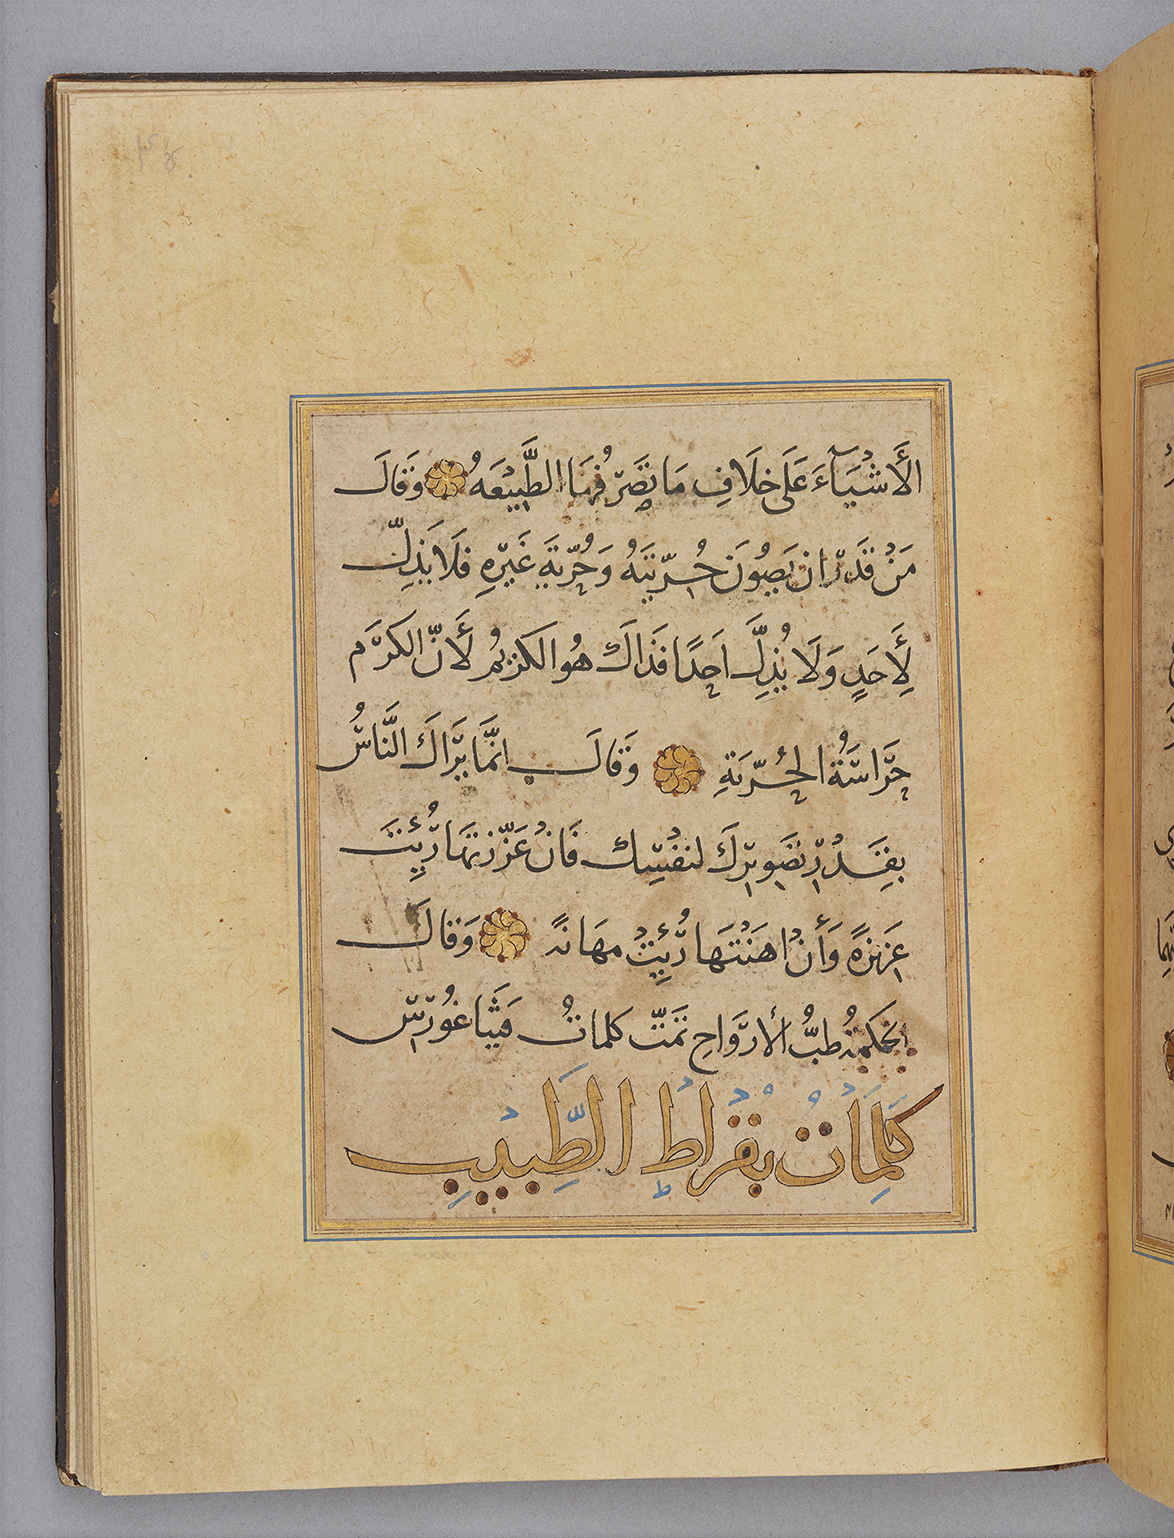 الأَشْيَآءَ عَلَى خِلَافِ مَا تَصَرَّفُ بِهَا الطَّبِيْعَهُ وَقَالَ
مَنْ قَدَرَ ان يَصُونَ حُرِّيَتَهُ وَحُرِّيَةِ غَيْرِهِ فَلَا يَذِلّ
لِأَحَدٍ وَلَا يُذِلَّ اَحَدًا فَذَاكَ هُو الكَرِيمُ لَأَنَّ الكَرَم
حَرَاسَةُ الحُرِّيَةِ وَقَالَ انَّمَا يَرَاكَ النَّاسُ
بِقَدْرِ تَصْوِيْرِكَ لنَفْسِك فَانْ عَزَّزتَهَا رُئِيَتْ
عَزِيزَةً وَأَنْ اهَنْتَهَا رُئِيَتْ مهَانةً وَقَالَ
الحكمَةُ طبُّ الأرْوَاحِ تَمَّتْ كلماتُ فَيْثَاغُورَس
كَلِمَاتُ بُقْرَاطْ الطَّبِيْبِ